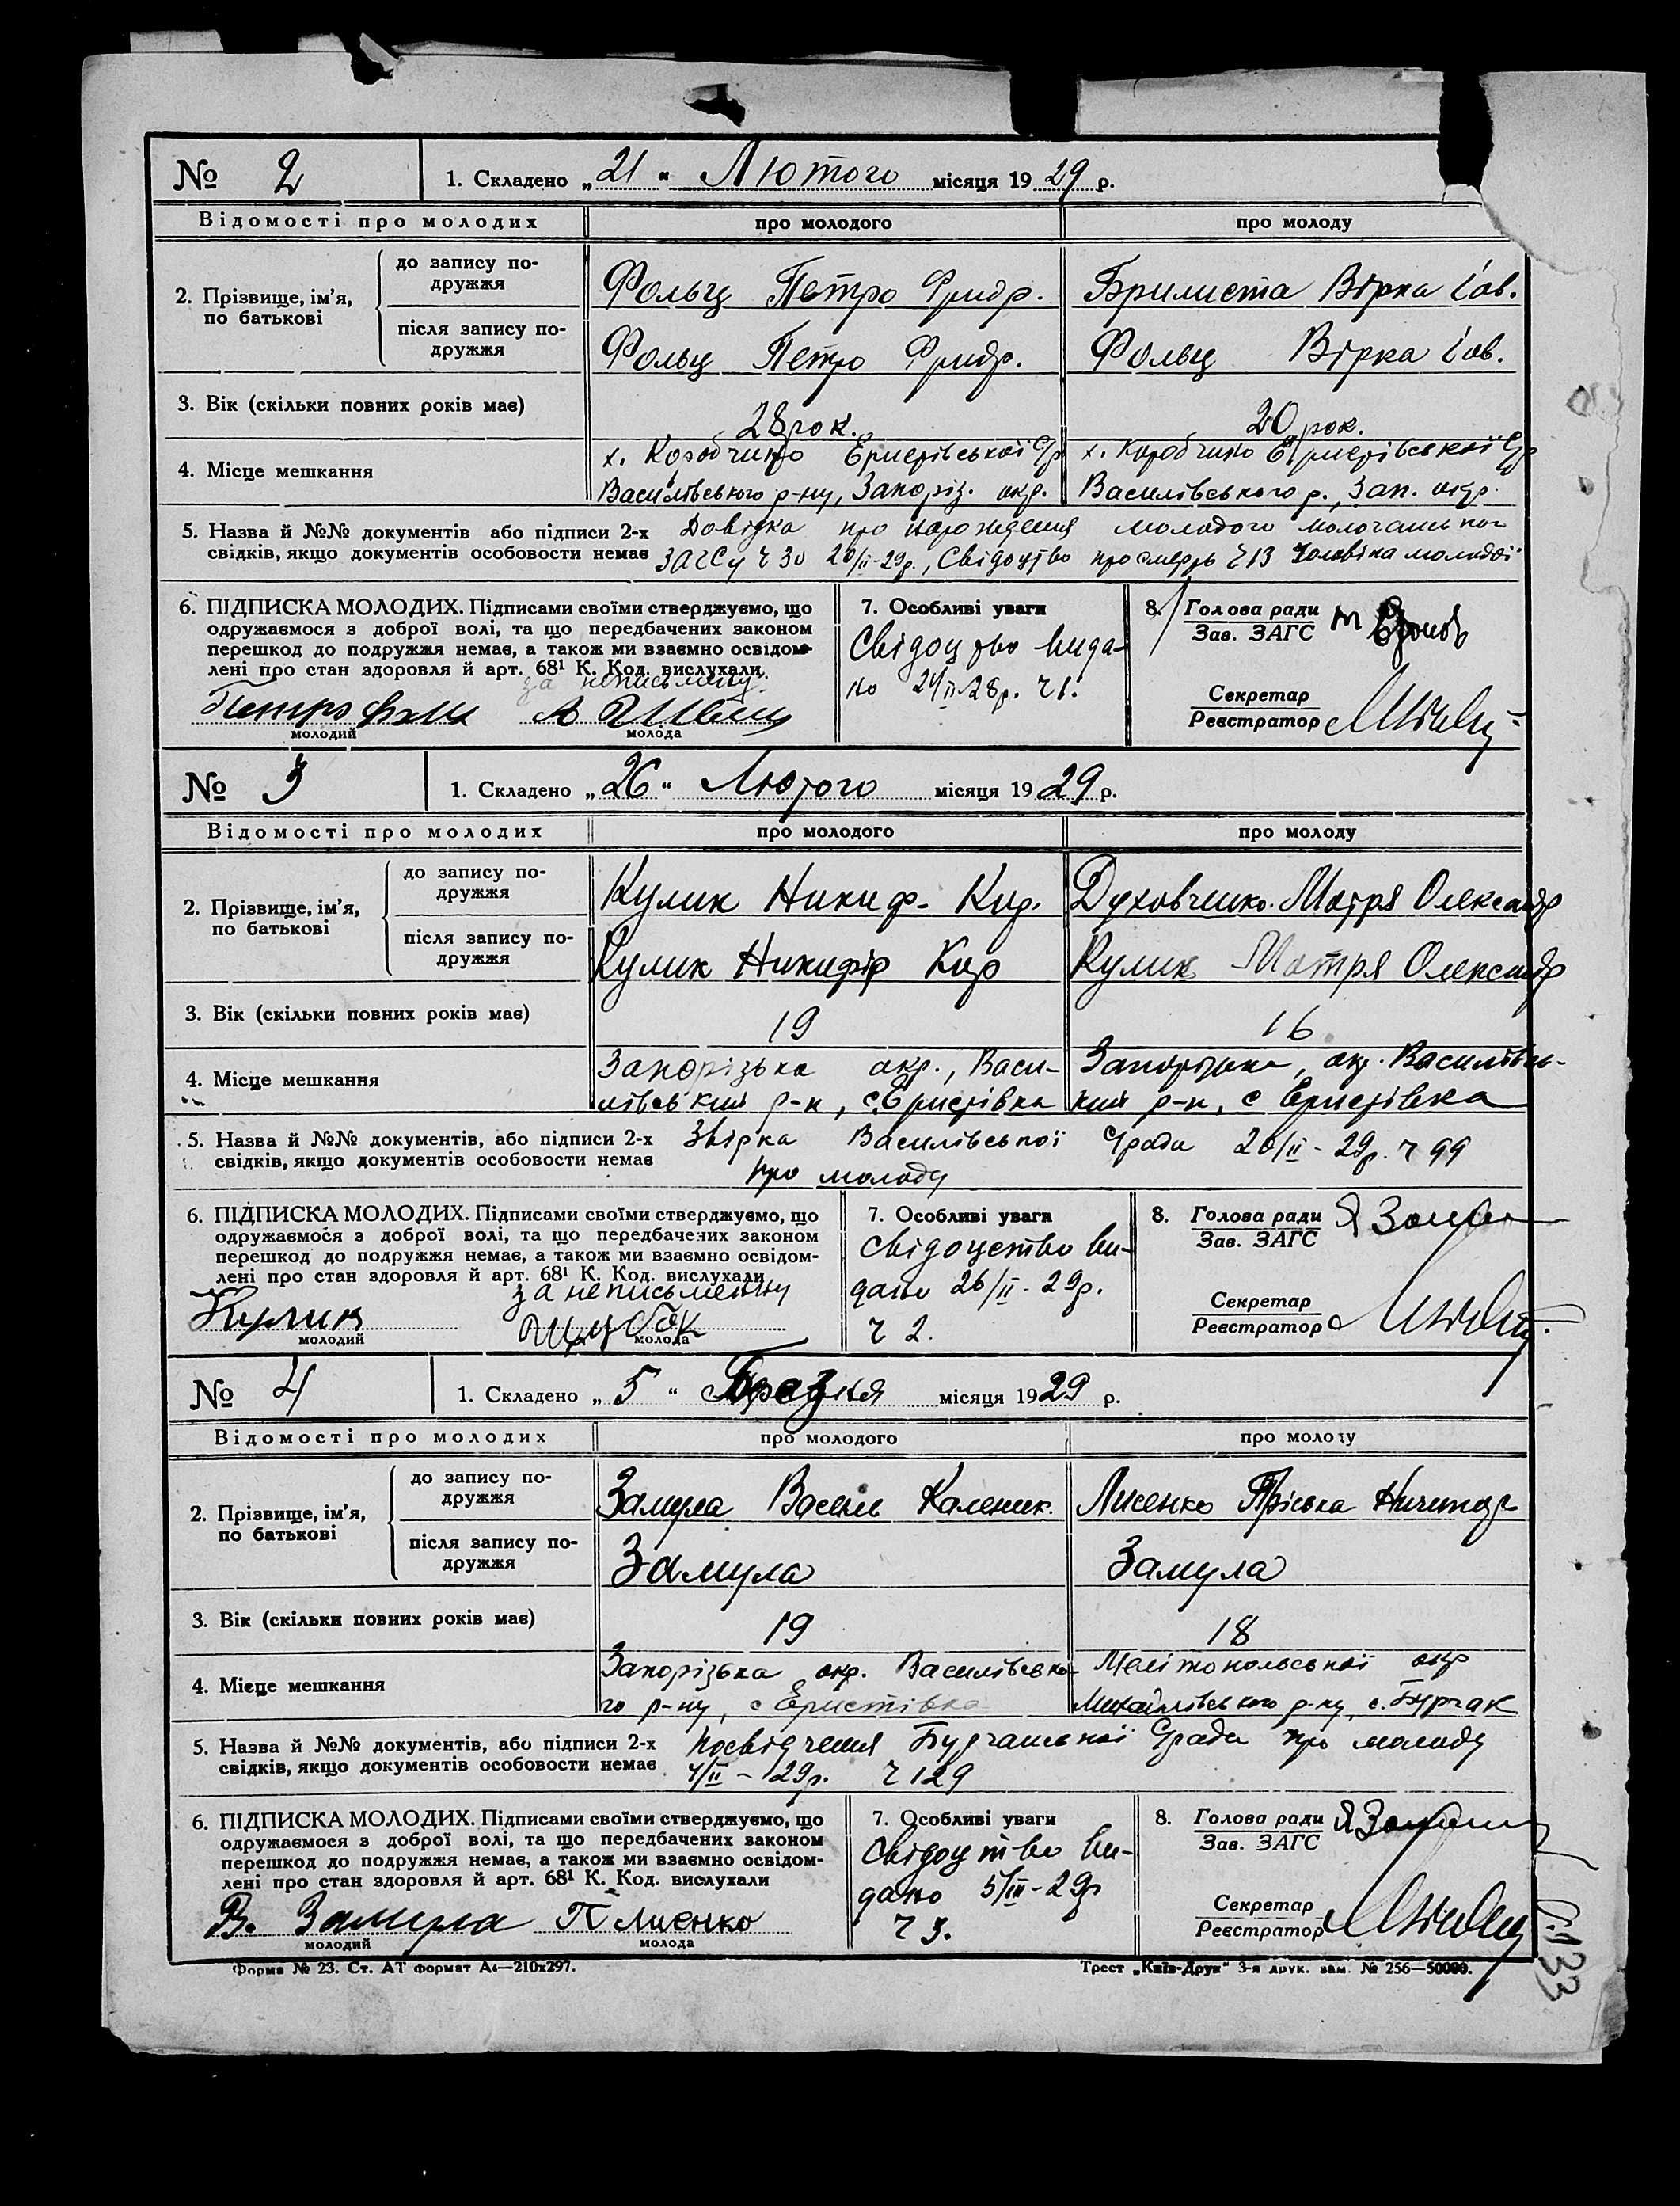 № 2 1. Складено „ 21 “ Лютого місяця 19 29 р.
Відомості про молодих про молодого про молоду
2. Прізвище, ім’я, по батькові
до запису подружжя Фольц Петро Фридр. Брилиста Вірка Іов.
після запису подружжя Фольц Петро Фридр. Фольц Вірка Іов.
3. Вік (скільки повних років має) 28 рок. 20 рок.
4. Місце мешкання
х. Коробчино Еристівської С/р х. Коробчино Еристівської С/р
Василівського р-ну, Запоріз. окр. Василівського р., Зап. окр.
5. Назва й №№ документів або підписи 2-х Довідка про народження молодого
свідків, якщо документів особовости немає ЗАГСу Ч 30 20/II-29р., Свідоцтво про смерть Ч 13 чоловіка молодої
6. ПІДПИСКА МОЛОДИХ. Підписами своїми стверджуємо, що
одружаємося з доброї волі, та що передбачених законом
перешкод до подружжя немає, а також ми взаємно освідом-
лені про стан здоров’я й арт. 68¹ К. Код. вислухали.
за неписьмену
Петро
молодий молода
7. Особливі уваги
Свідоцтво вида-
но 21/II-28р. Ч 1.
8. Голова ради
Зав. ЗАГС
Секретар
Реєстратор
№ 3 1. Складено „ 26 “ Лютого місяця 19 29 р.
Відомості про молодих про молодого про молоду
2. Прізвище, ім’я, по батькові
до запису подружжя Кулик Никиф. Кир. Духовченко Мотря Олександр
після запису подружжя Кулик Никифір Кир Кулик Мотря Олександр
3. Вік (скільки повних років має) 19 16
4. Місце мешкання
Запорізька окр., Васи- Запорізька, окр. Василівсь-
лівський р-н, с. Еристівка кий р-н, с Еристівка
5. Назва й №№ документів, або підписи 2-х Звірка Василівської С/ради 26/II-29р. Ч 99
свідків, якщо документів особовости немає про молоду
6. ПІДПИСКА МОЛОДИХ. Підписами своїми стверджуємо, що
одружаємося з доброї волі, та що передбачених законом
перешкод до подружжя немає, а також ми взаємно освідом-
лені про стан здоровля й арт. 68¹ К. Код. вислухали
за неписьменну
Кулик
молодий молода
7. Особливі уваги
Свідоцство ви-
дано 26/II-29р.
Ч 2.
8. Голова ради
Зав. ЗАГС
Секретар
Реєстратор
№ 4 1. Складено „ 5 “ місяця 19 29 р.
Відомості про молодих про молодого про молоду
2. Прізвище, ім’я, по батькові
до запису подружжя Замула Василь Каленик. Лисенко Пріська Ничипор
після запису подружжя Замула Замула
3. Вік (скільки повних років має) 19 18
4. Місце мешкання
Запорізька окр. Василівсько- Мелітопольської окр
го р-ну, с Еристівка Михайлівського р-ну, с. Бурчак
5. Назва й №№ документів, або підписи 2-х Посвідчення Бурчацької С/ради про молоду
свідків, якщо документів особовости немає 4/II-29р. Ч 129
6. ПІДПИСКА МОЛОДИХ. Підписами своїми стверджуємо, що
одружаємося з доброї волі, та що передбачених законом
перешкод до подружжя немає, а також ми взаємно освідом-
лені про стан здоровля й арт. 68¹ К. Код. вислухали
В. Замула П Лисенко
молодий молода
7. Особливі уваги
Свідоцтво ви-
дано 5/III-29р
Ч 3.
8. Голова ради
Зав. ЗАГС
Секретар
Реєстратор
Форма № 23. Ст. АТ формат А4—210х297. Трест „Київ-Друк“ 3-я друк. зам. № 256—50000.